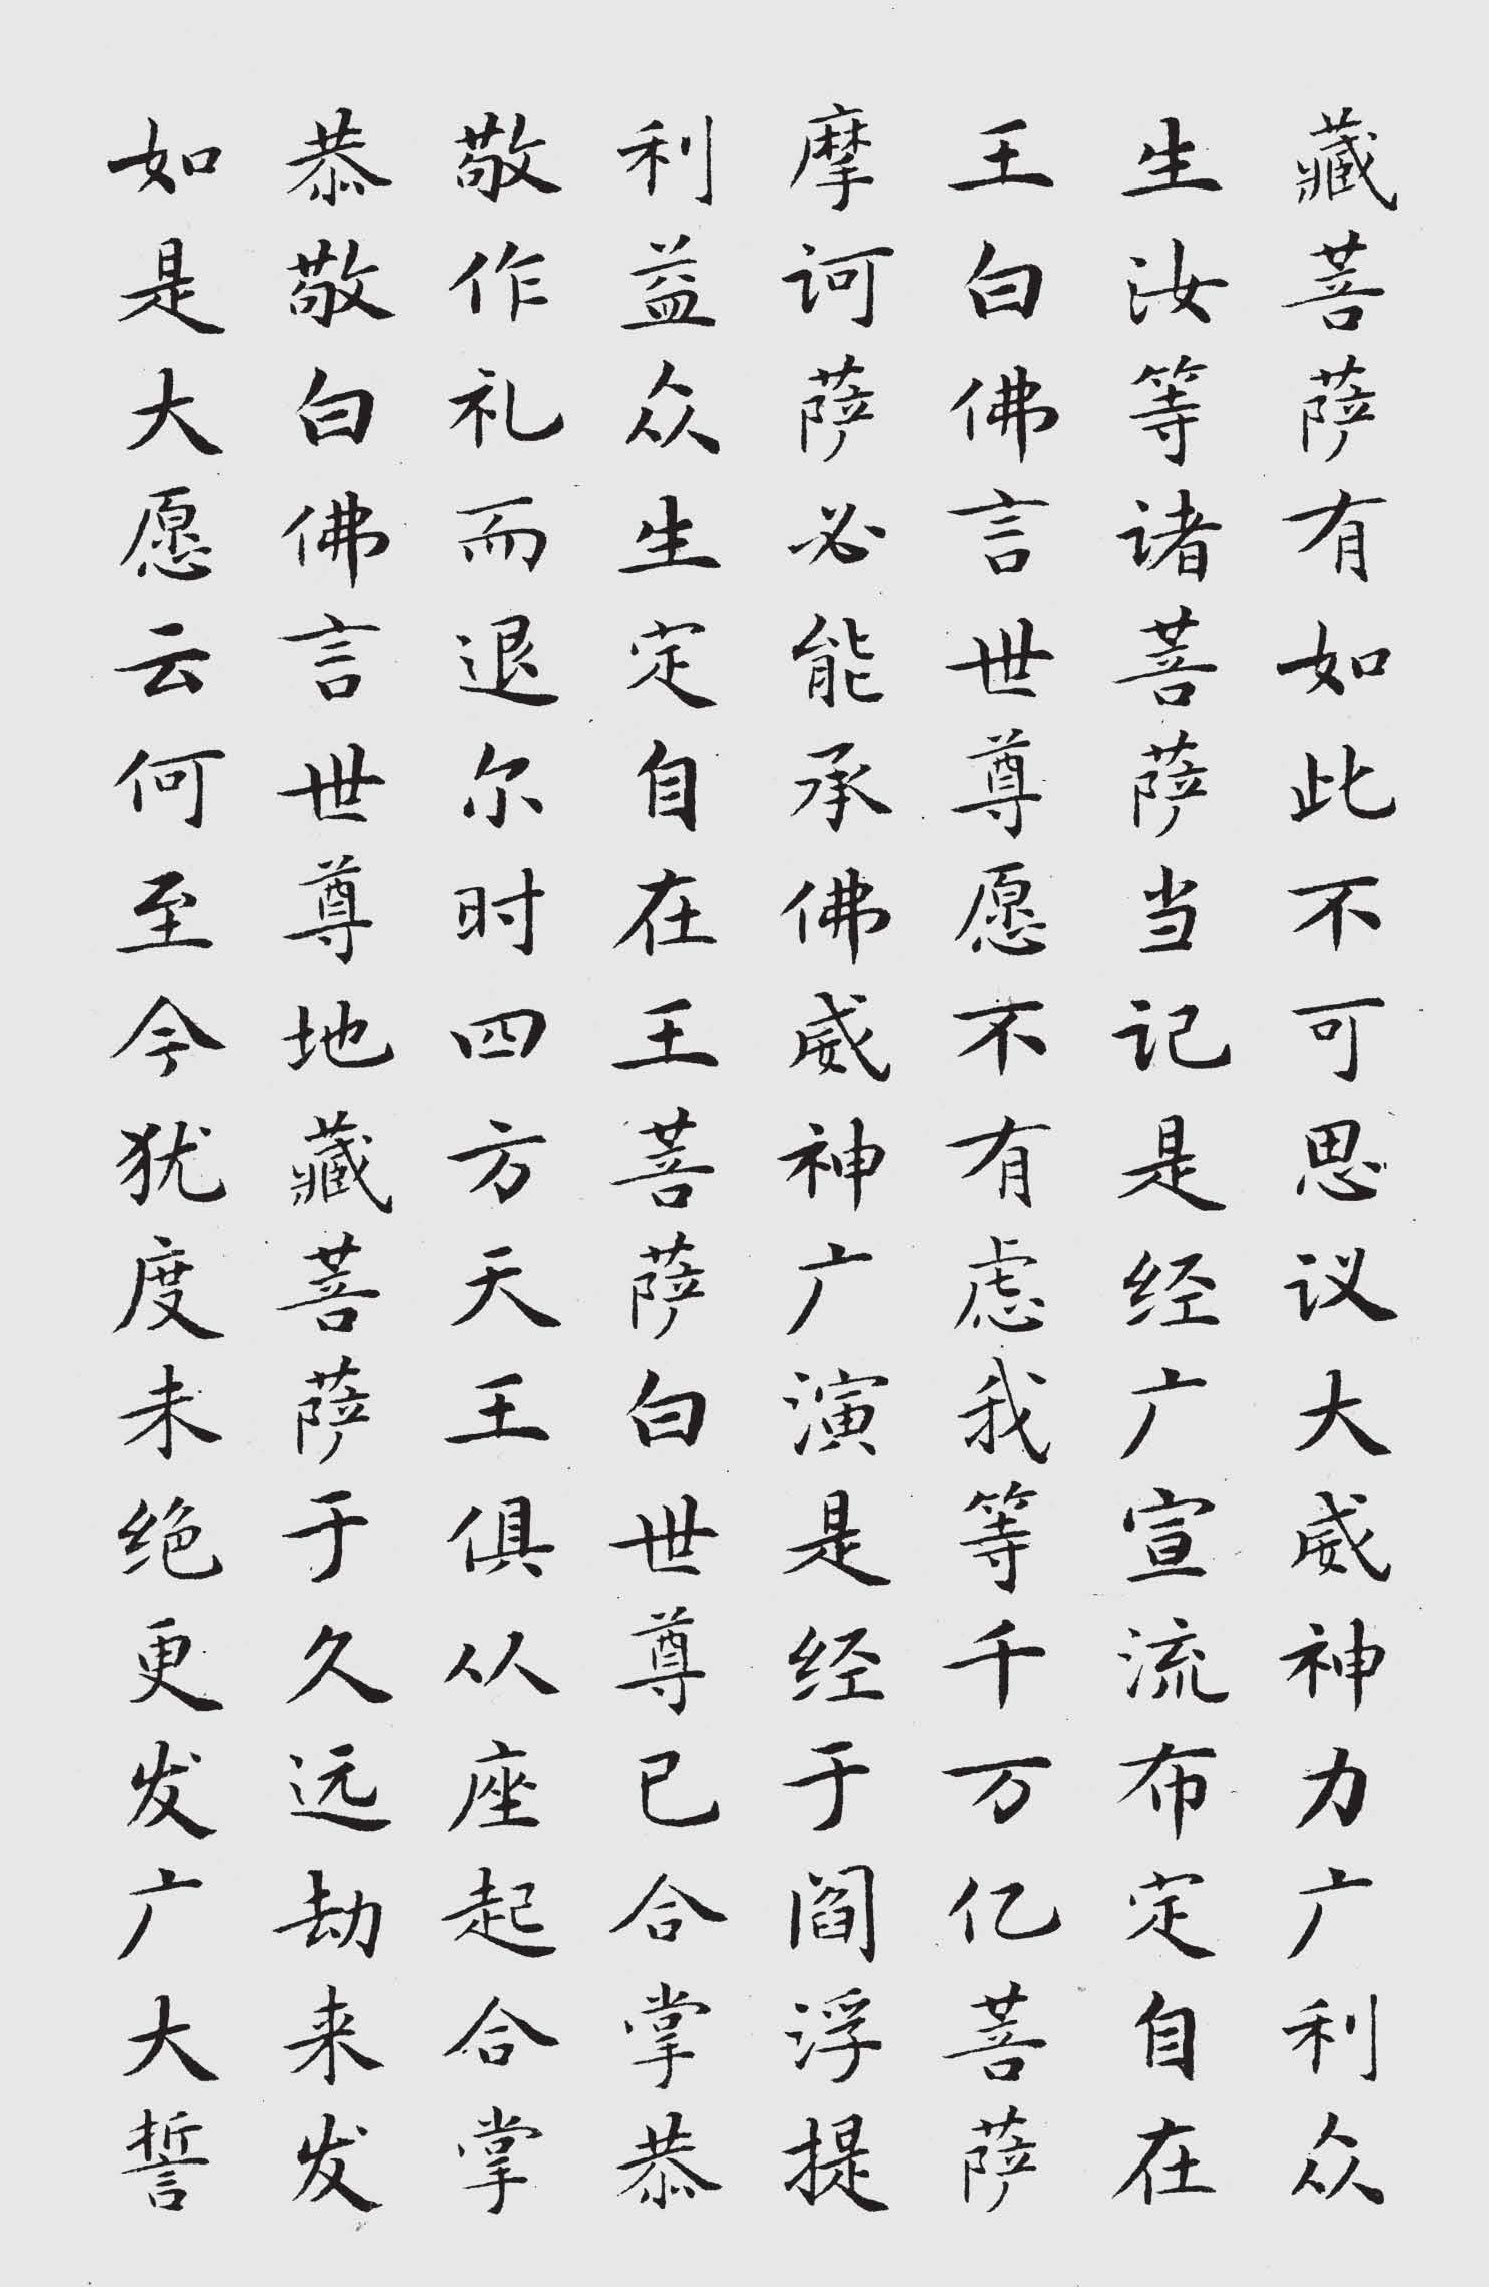 藏菩萨有如此不可思议大威神力广利众
生汝等诸菩萨当记是经广宣流布定自在
王白佛言世尊愿不有虑我等千万亿菩萨
摩诃萨必能承佛威神广演是经于阎浮提
利益众生定自在王菩萨白世尊已合掌恭
敬作礼而退尔时四方天王俱从座起合掌
恭敬白佛言世尊地藏菩萨于久远劫来发
如是大愿云何至今犹度未绝更发广大誓